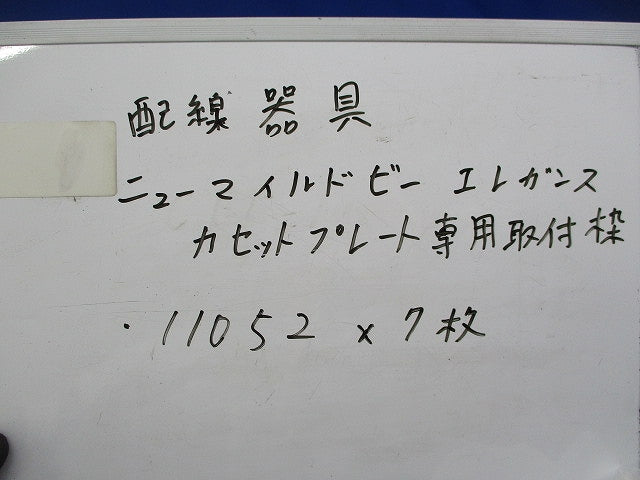 配線器具
ニューマイルドビー エレガンス
カセットプレート専用取付枠
・11052 x 7枚